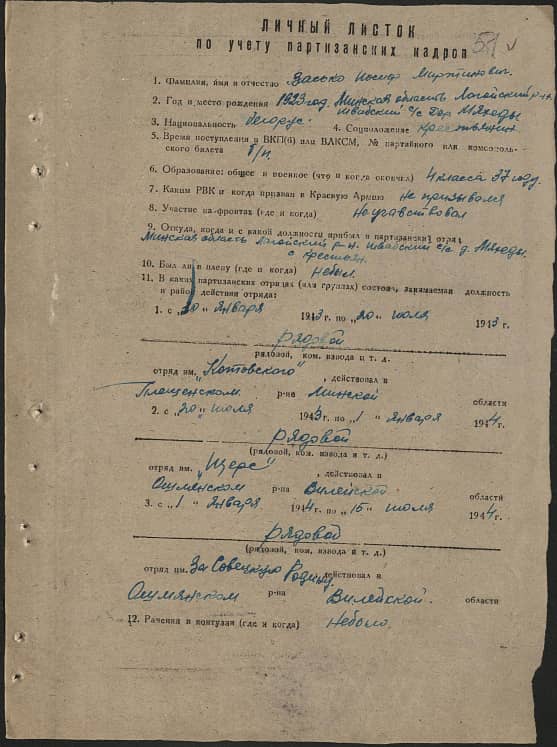 ЛИЧНЫЙ ЛИСТОК
по учету партизанских кадров
1. Фамилия, имя и отчество Засько Иосиф Мартинович.
2. Год и место рождения 1923 год. Минская область Логойский р-н
Швабский с/с дер. Мляходы
3. Национальность белорус. 4. Соцположение крестьянин
5. Время поступления в ВКП(б) или ВЛКСМ, № партийного или комсомоль-
ского билета б/п.
6. Образование: общее и военное (что и когда окончил) 4 класса 37 году.
7. Каким РВК и когда призван в Красную Армию не призывался
8. Участие на фронтах (где и когда) не участвовал
9. Откуда, когда и с какой должности прибыл в партизанский отряд
Минская область Логойский р-н. Швабский с/с д.
с крестьян.
10. Был ли в плену (где и когда) не был.
11. В каких партизанских отрядах (или группах) состоял, занимаемая должность
и район действия отряда:
1. с „30" января 1943 г. по „20" июля 1943 г.
рядовой
рядовой, ком. взвода и т. д.
отряд им. „Котовского", действовал в
Плещенском р-не Минской области
2. с „20" июля 1943 г. по „1" января 1944 г.
рядовой
(рядовой, ком. взвода и т. д.)
отряд им. „Щорс", действовал в
Ошмянском р-на Вилейской области
3. с „1" января 1944 г. по „15" июля 1944 г.
рядовой
(рядовой, ком. взвода и т. д.)
отряд им. За Советскую Родину действовал в
Ошмянском р-на Вилейской. области
12. Ранения и контузии (где и когда) Не было.